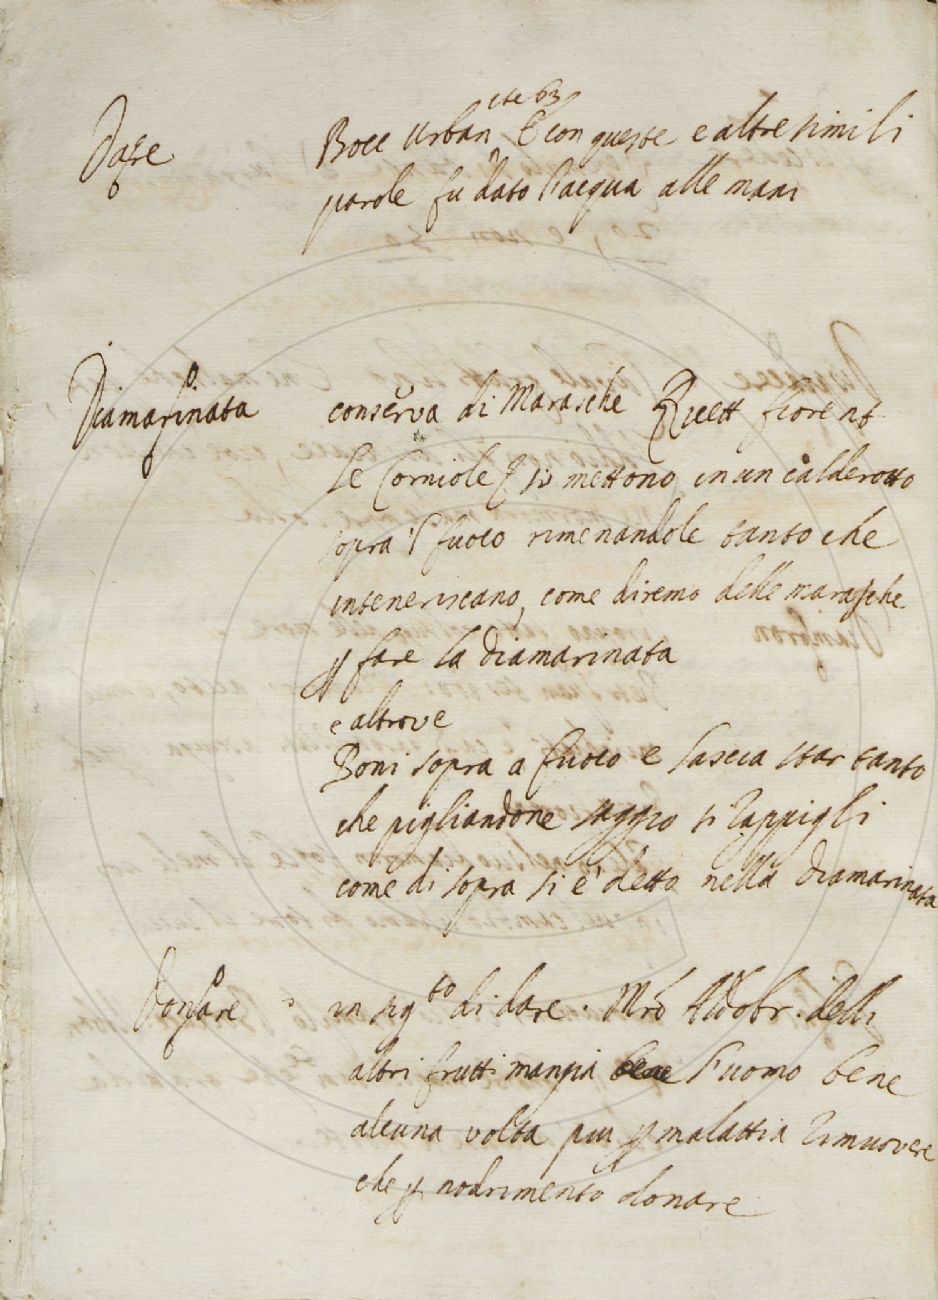 Dare
Bocc Urban cte 63 E con queste e altre simili
parole fu dato l'acqua alle mani
Diamarinata
conserva di Marasche Ricett fiorent
Le Corniole si mettono in un calderotto
sopra 'l fuoco rimenandole tanto che
inteneriscano, come diremo delle marasche
ꝑ fare la diamarinata
e altrove
Poni sopra a fuoco e lascia star tanto
che pigliandone saggio si rappigli
come di sopra si e' detto nella diamarinata
Donare
in sig.to di dare. Mro Aldobr. delli
altri frutti mangia bene l'uomo bene
alcuna volta piu ꝑ malattia rimuovere
che ꝑ nodrimento donare